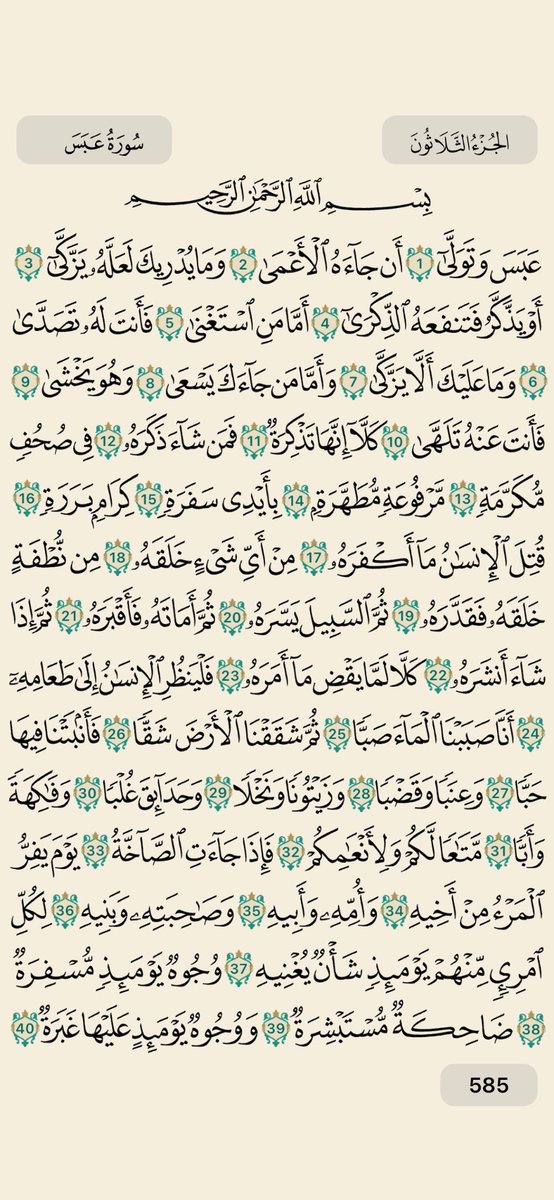 الجُزْءُ الثَّلَاثُونَ
سُورَةُ عَبَسَ
بِسْمِ ٱللَّهِ ٱلرَّحْمَٰنِ ٱلرَّحِيمِ
عَبَسَ وَتَوَلَّىٰٓ 1 أَن جَآءَهُ ٱلْأَعْمَىٰ 2 وَمَا يُدْرِيكَ لَعَلَّهُۥ يَزَّكَّىٰٓ 3
أَوْ يَذَّكَّرُ فَتَنفَعَهُ ٱلذِّكْرَىٰٓ 4 أَمَّا مَنِ ٱسْتَغْنَىٰ 5 فَأَنتَ لَهُۥ تَصَدَّىٰ
6 وَمَا عَلَيْكَ أَلَّا يَزَّكَّىٰ 7 وَأَمَّا مَن جَآءَكَ يَسْعَىٰ 8 وَهُوَ يَخْشَىٰ 9
فَأَنتَ عَنْهُ تَلَهَّىٰ 10 كَلَّآ إِنَّهَا تَذْكِرَةٌ 11 فَمَن شَآءَ ذَكَرَهُۥ 12 فِى صُحُفٍ
مُّكَرَّمَةٍ 13 مَّرْفُوعَةٍ مُّطَهَّرَةٍۭ 14 بِأَيْدِى سَفَرَةٍ 15 كِرَامٍۭ بَرَرَةٍ 16
قُتِلَ ٱلْإِنسَٰنُ مَآ أَكْفَرَهُۥ 17 مِنْ أَىِّ شَىْءٍ خَلَقَهُۥ 18 مِن نُّطْفَةٍ
خَلَقَهُۥ فَقَدَّرَهُۥ 19 ثُمَّ ٱلسَّبِيلَ يَسَّرَهُۥ 20 ثُمَّ أَمَاتَهُۥ فَأَقْبَرَهُۥ 21 ثُمَّ إِذَا
شَآءَ أَنشَرَهُۥ 22 كَلَّا لَمَّا يَقْضِ مَآ أَمَرَهُۥ 23 فَلْيَنظُرِ ٱلْإِنسَٰنُ إِلَىٰ طَعَامِهِۦٓ
24 أَنَّا صَبَبْنَا ٱلْمَآءَ صَبًّا 25 ثُمَّ شَقَقْنَا ٱلْأَرْضَ شَقًّا 26 فَأَنۢبَتْنَا فِيهَا
حَبًّا 27 وَعِنَبًا وَقَضْبًا 28 وَزَيْتُونًا وَنَخْلًا 29 وَحَدَآئِقَ غُلْبًا 30 وَفَٰكِهَةً
وَأَبًّا 31 مَّتَٰعًا لَّكُمْ وَلِأَنْعَٰمِكُمْ 32 فَإِذَا جَآءَتِ ٱلصَّآخَّةُ 33 يَوْمَ يَفِرُّ
ٱلْمَرْءُ مِنْ أَخِيهِ 34 وَأُمِّهِۦ وَأَبِيهِ 35 وَصَٰحِبَتِهِۦ وَبَنِيهِ 36 لِكُلِّ
ٱمْرِئٍ مِّنْهُمْ يَوْمَئِذٍ شَأْنٌ يُغْنِيهِ 37 وُجُوهٌ يَوْمَئِذٍ مُّسْفِرَةٌ
38 ضَاحِكَةٌ مُّسْتَبْشِرَةٌ 39 وَوُجُوهٌ يَوْمَئِذٍ عَلَيْهَا غَبَرَةٌ 40
585